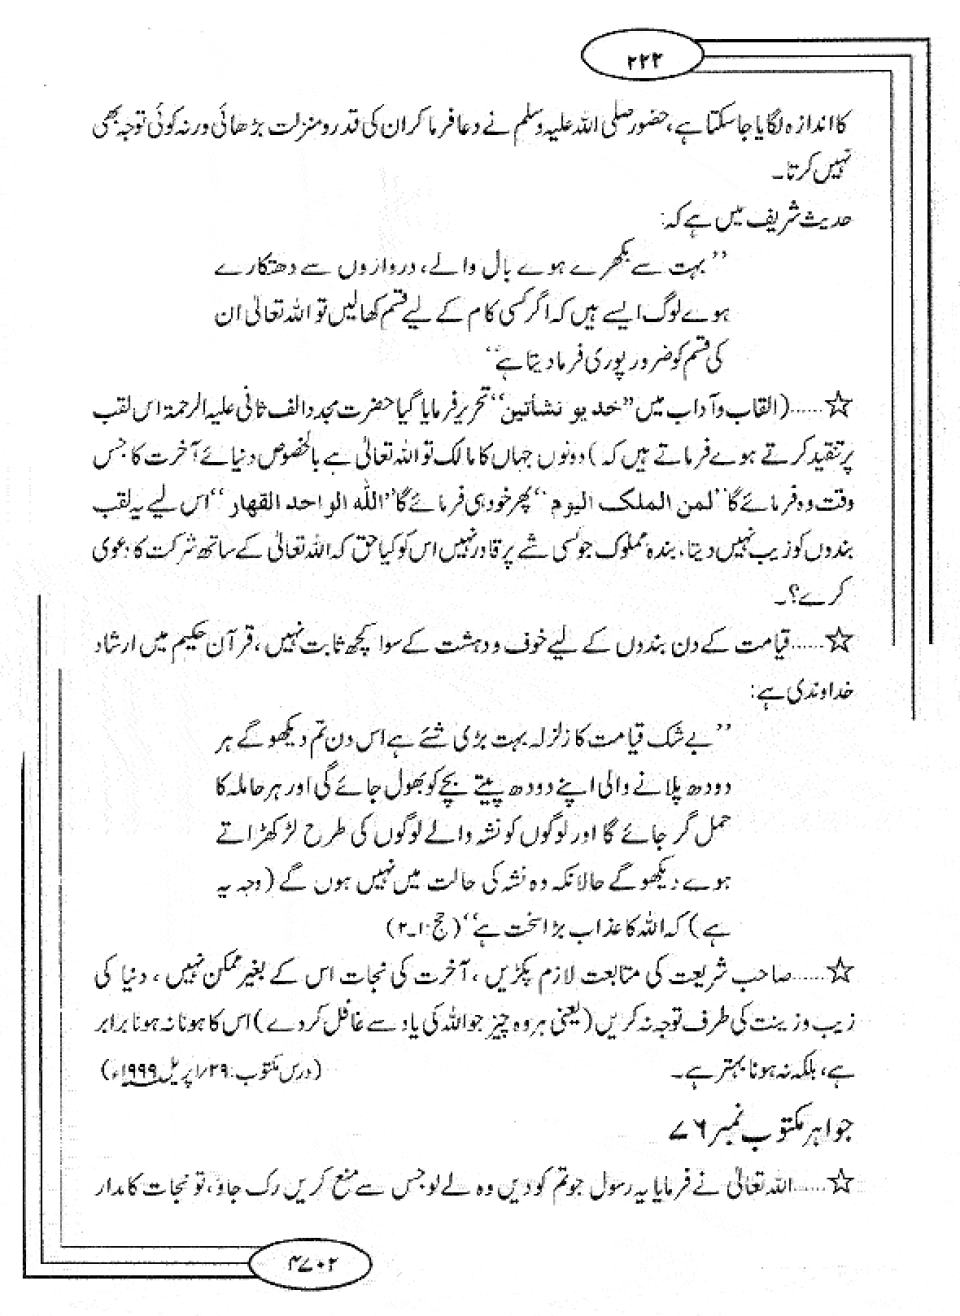 ۲۲۴
کا اندازہ لگایا جا سکتا ہے، حضور صلی اللہ علیہ وسلم نے دعا فرما کر ان کی قدر و منزلت بڑھائی ورنہ کوئی توجہ بھی
نہیں کرتا۔
حدیث شریف میں ہے کہ:
’’بہت سے بکھرے ہوے بال والے، دروازوں سے دھتکارے
ہوے لوگ ایسے ہیں کہ اگر کسی کام کے لیے قسم کھا لیں تو اللہ تعالیٰ ان
کی قسم کو ضرور پوری فرما دیتا ہے‘‘
☆......(القاب و آداب میں ’’خدیو نشأتین‘‘ تحریر فرمایا گیا حضرت مجدد الف ثانی علیہ الرحمۃ اس لقب
پر تنقید کرتے ہوے فرماتے ہیں کہ) دونوں جہاں کا مالک تو اللہ تعالیٰ ہے بالخصوص دنیائے آخرت کا جس
وقت وہ فرمائے گا ’’لمن الملک الیوم‘‘ پھر خود ہی فرمائے گا ’’اللہ الواحد القهار‘‘ اس لیے یہ لقب
بندوں کو زیب نہیں دیتا، بندہ مملوک جو کسی شے پر قادر نہیں اس کو کیا حق کہ اللہ تعالیٰ کے ساتھ شرکت کا دعوی
کرے؟۔
☆......قیامت کے دن بندوں کے لیے خوف و دہشت کے سوا کچھ ثابت نہیں، قرآن حکیم میں ارشاد
خداوندی ہے:
’’بے شک قیامت کا زلزلہ بہت بڑی شئے ہے اس دن تم دیکھو گے ہر
دودھ پلانے والی اپنے دودھ پیتے بچے کو بھول جائے گی اور ہر حاملہ کا
حمل گر جائے گا اور لوگوں کو نشہ والے لوگوں کی طرح لڑکھڑاتے
ہوے دیکھو گے حالانکہ وہ نشہ کی حالت میں نہیں ہوں گے (وجہ یہ
ہے) کہ اللہ کا عذاب بڑا سخت ہے‘‘ (حج:۱۔۲)
☆......صاحب شریعت کی متابعت لازم پکڑیں، آخرت کی نجات اس کے بغیر ممکن نہیں، دنیا کی
زیب و زینت کی طرف توجہ نہ کریں (یعنی ہر وہ چیز جو اللہ کی یاد سے غافل کر دے) اس کا ہونا نہ ہونا برابر
ہے، بلکہ نہ ہونا بہتر ہے۔ (درس مکتوب: ۲۹/اپریل ۱۹۹۹ء)
جواہر مکتوب نمبر ۷۶
☆......اللہ تعالیٰ نے فرمایا یہ رسول جو تم کو دیں وہ لے لو جس سے منع کریں رک جاو، تو نجات کا مدار
۴۷۰۲